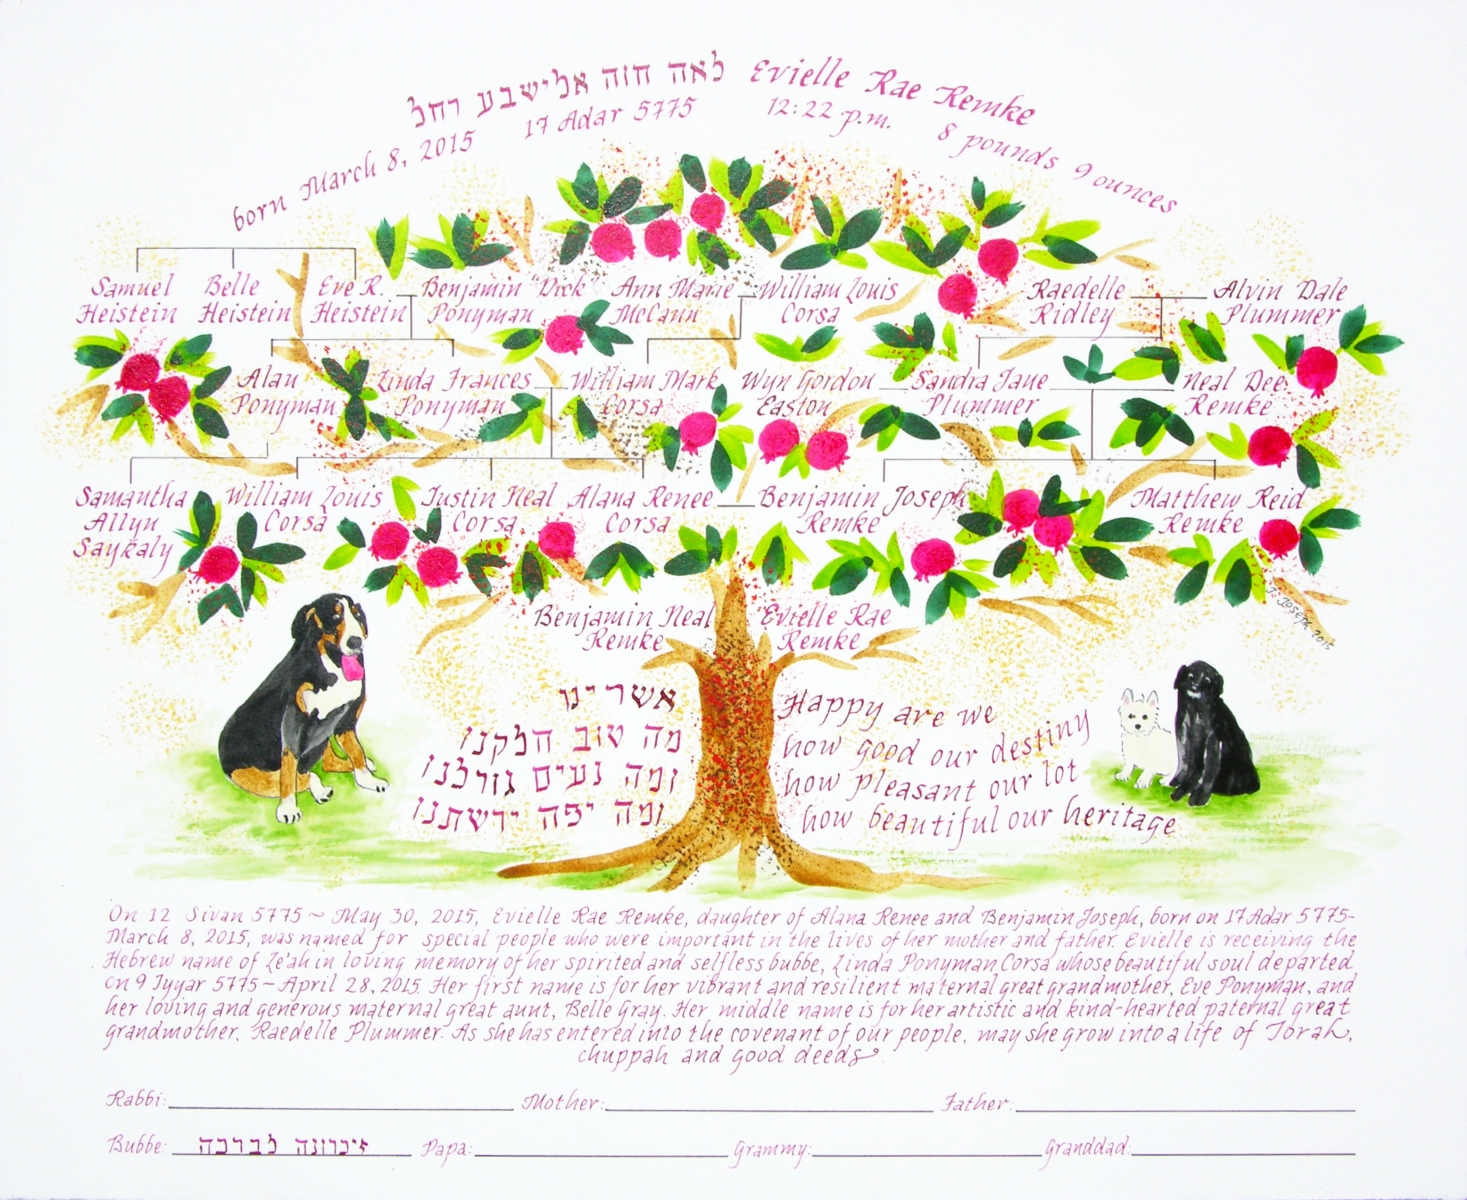 לאה חוה אלישבע רחל Evielle Rae Remke
born March 8, 2015 17 Adar 5775 12:22 p.m. 8 pounds 9 ounces
Samuel Heistein
Belle Heistein
Eve R. Heistein
Benjamin "Dick" Ponyman
Ann Marie McCann
William Louis Corsa
Raedelle Ridley
Alvin Dale Plummer
Alan Ponyman
Linda Frances Ponyman
William Mark Corsa
Wyn Gordon Easton
Sandra Jane Plummer
Neal Dee Remke
Samantha Allyn Saykaly
William Louis Corsa
Justin Neal Corsa
Alana Renee Corsa
Benjamin Joseph Remke
Matthew Reid Remke
Benjamin Neal Remke
Evielle Rae Remke
J. Joseph 2015
אשרינו
מה טוב חלקנו
ומה נעים גורלנו
ומה יפה ירשתנו
Happy are we
how good our destiny
how pleasant our lot
how beautiful our heritage
On 12 Sivan 5775 ~ May 30, 2015, Evielle Rae Remke, daughter of Alana Renee and Benjamin Joseph, born on 17 Adar 5775-
March 8, 2015, was named for special people who were important in the lives of her mother and father. Evielle is receiving the
Hebrew name of Le'ah in loving memory of her spirited and selfless bubbe, Linda Ponyman Corsa whose beautiful soul departed
on 9 Iyyar 5775 ~ April 28, 2015. Her first name is for her vibrant and resilient maternal great grandmother, Eve Ponyman, and
her loving and generous maternal great aunt, Belle Gray. Her middle name is for her artistic and kind-hearted paternal great
grandmother, Raedelle Plummer. As she has entered into the covenant of our people, may she grow into a life of Torah,
chuppah and good deeds
Rabbi: Mother: Father:
Bubbe: זיכרונה לברכה Papa: Grammy: Granddad: